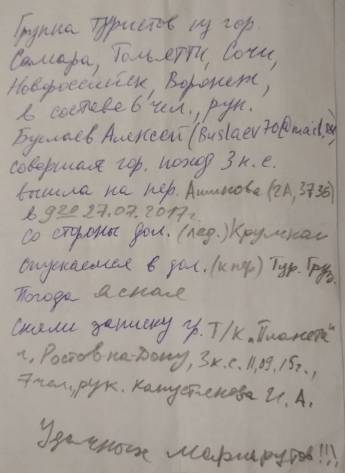 Группа туристов из гор.
Самара, Тольятти, Сочи,
Новороссийск, Воронеж,
в составе 6 чел., рук.
Буслаев Алексей (Buslaev70@mail.ru)
совершая гор. поход 3 к.с.
вышла на пер. (2А, 3736)
в 9:20 27.07.2017г.
со стороны дол. (лед.)
спускаемся в дол. (к пер) Тур. Груз.
Погода ясная
Сняли записку гр. Т/К "Планета"
г. Ростов на-Дону, 3 к.с. 11.09.15г.,
7 чел., рук. И. А.
Удачных маршрутов!!!